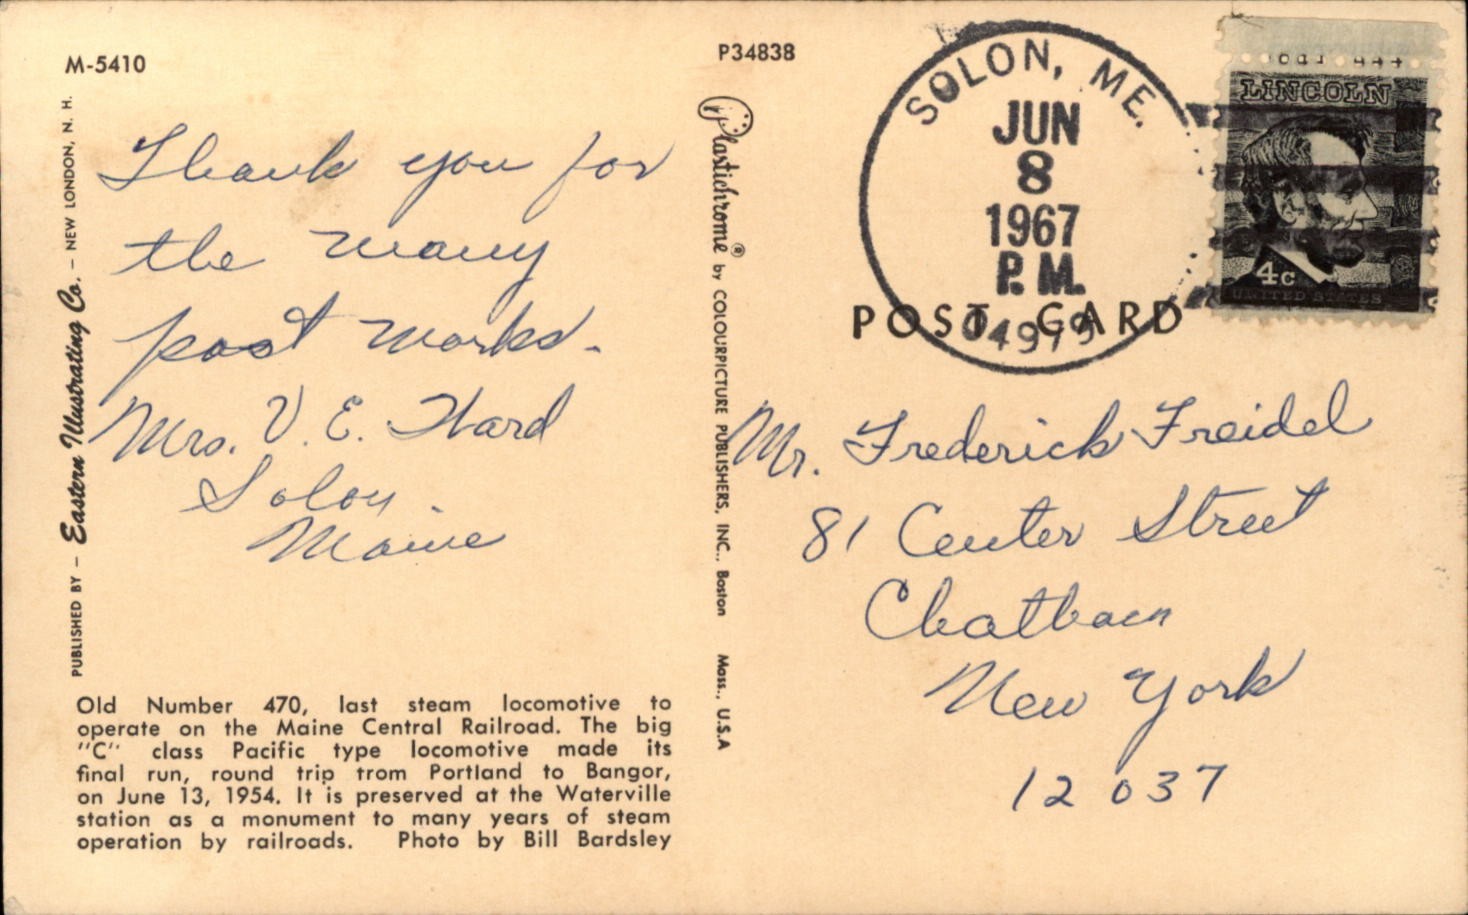 M-5410
P34838
SOLON, ME.
JUN
8
1967
P.M.
04979
LINCOLN
4c
UNITED STATES
POST CARD
Thank you for
the many
post marks.
Mrs. V. E. Ward
Solon
Maine
Mr. Frederick Freidel
81 Center Street
Chatham
New York
12037
PUBLISHED BY – Eastern Illustrating Co. – NEW LONDON, N. H.
Plastichrome® by COLOURPICTURE PUBLISHERS, INC., Boston Mass., U.S.A
Old Number 470, last steam locomotive to
operate on the Maine Central Railroad. The big
"C" class Pacific type locomotive made its
final run, round trip from Portland to Bangor,
on June 13, 1954. It is preserved at the Waterville
station as a monument to many years of steam
operation by railroads. Photo by Bill Bardsley